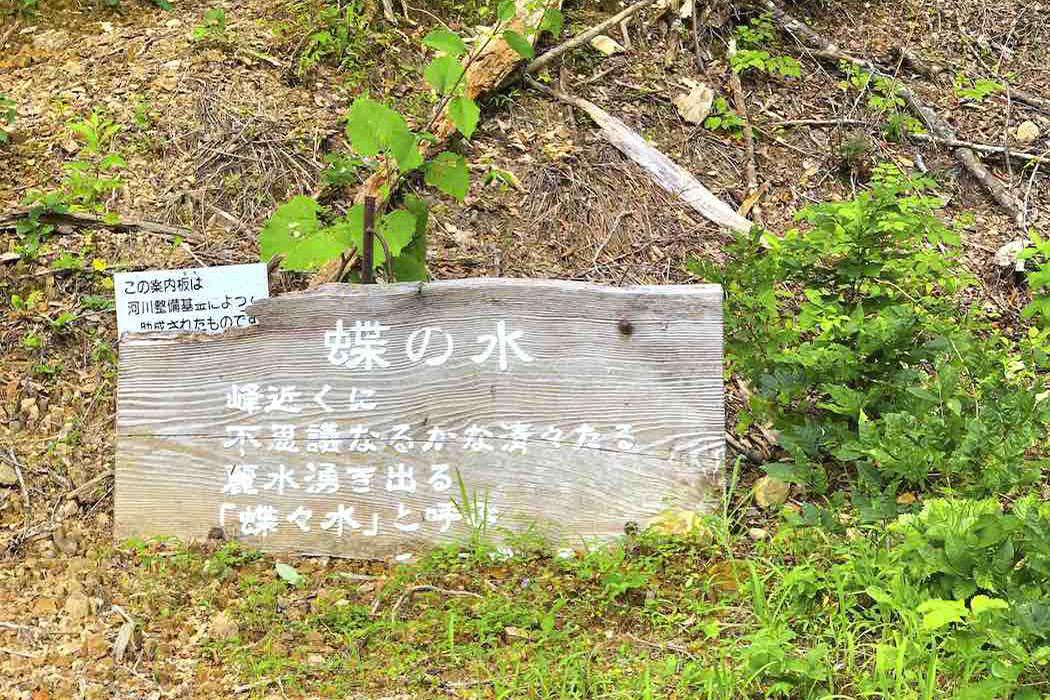 この案内板は
河川整備基金によって
助成されたものです
蝶の水
峰近くに
不思議なるかな済々たる
麗水湧き出る
「蝶々水」と呼ぶ